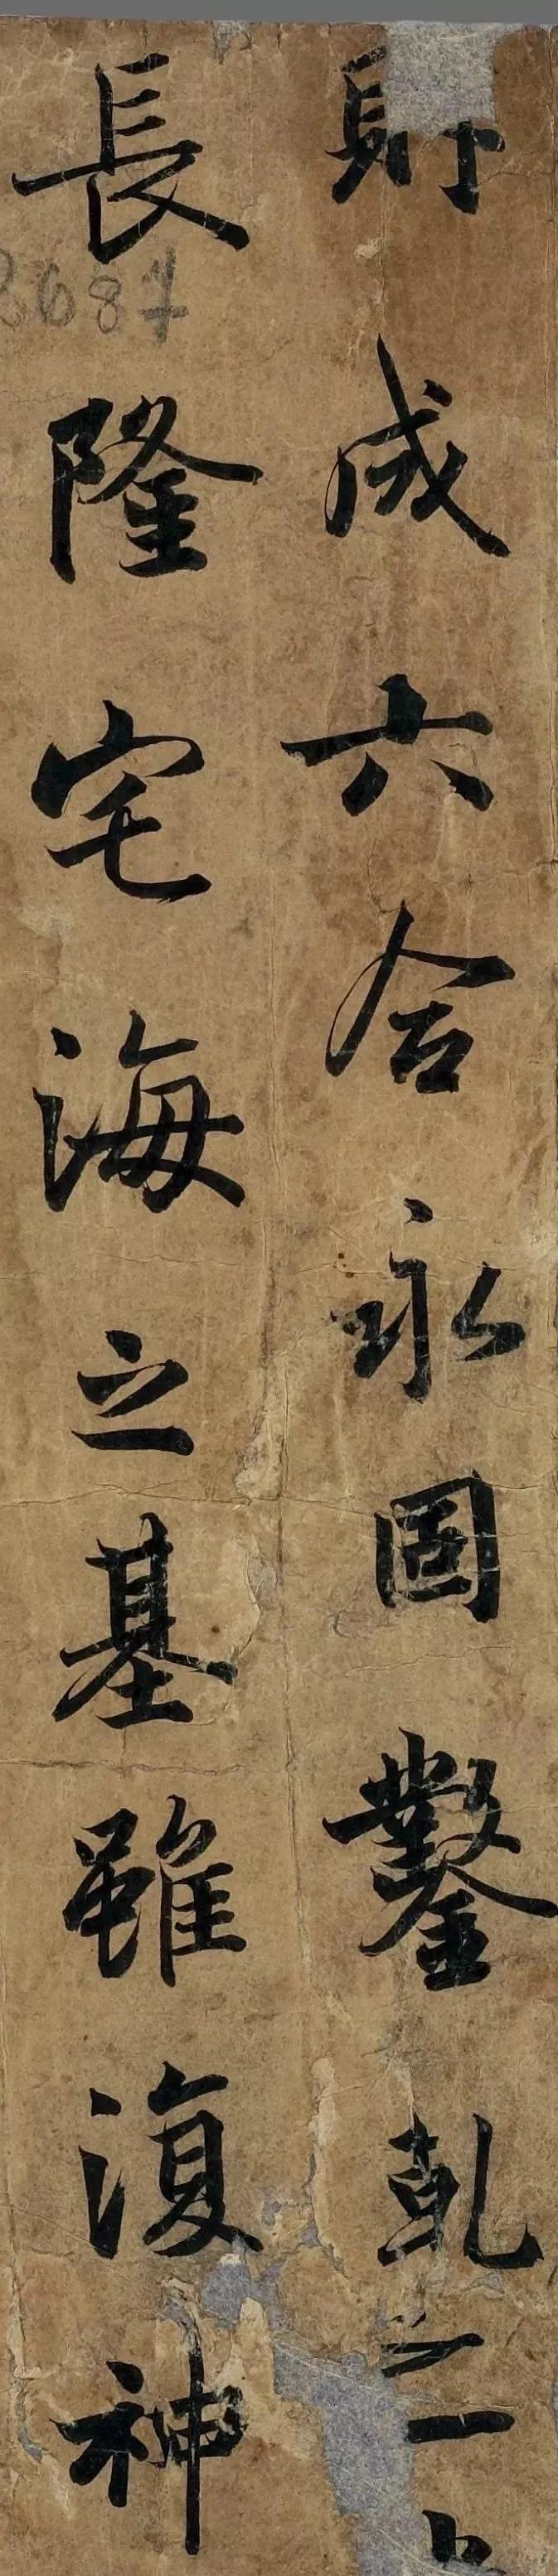 成六合永固鑿乾之
長隆宅海之基雖復神